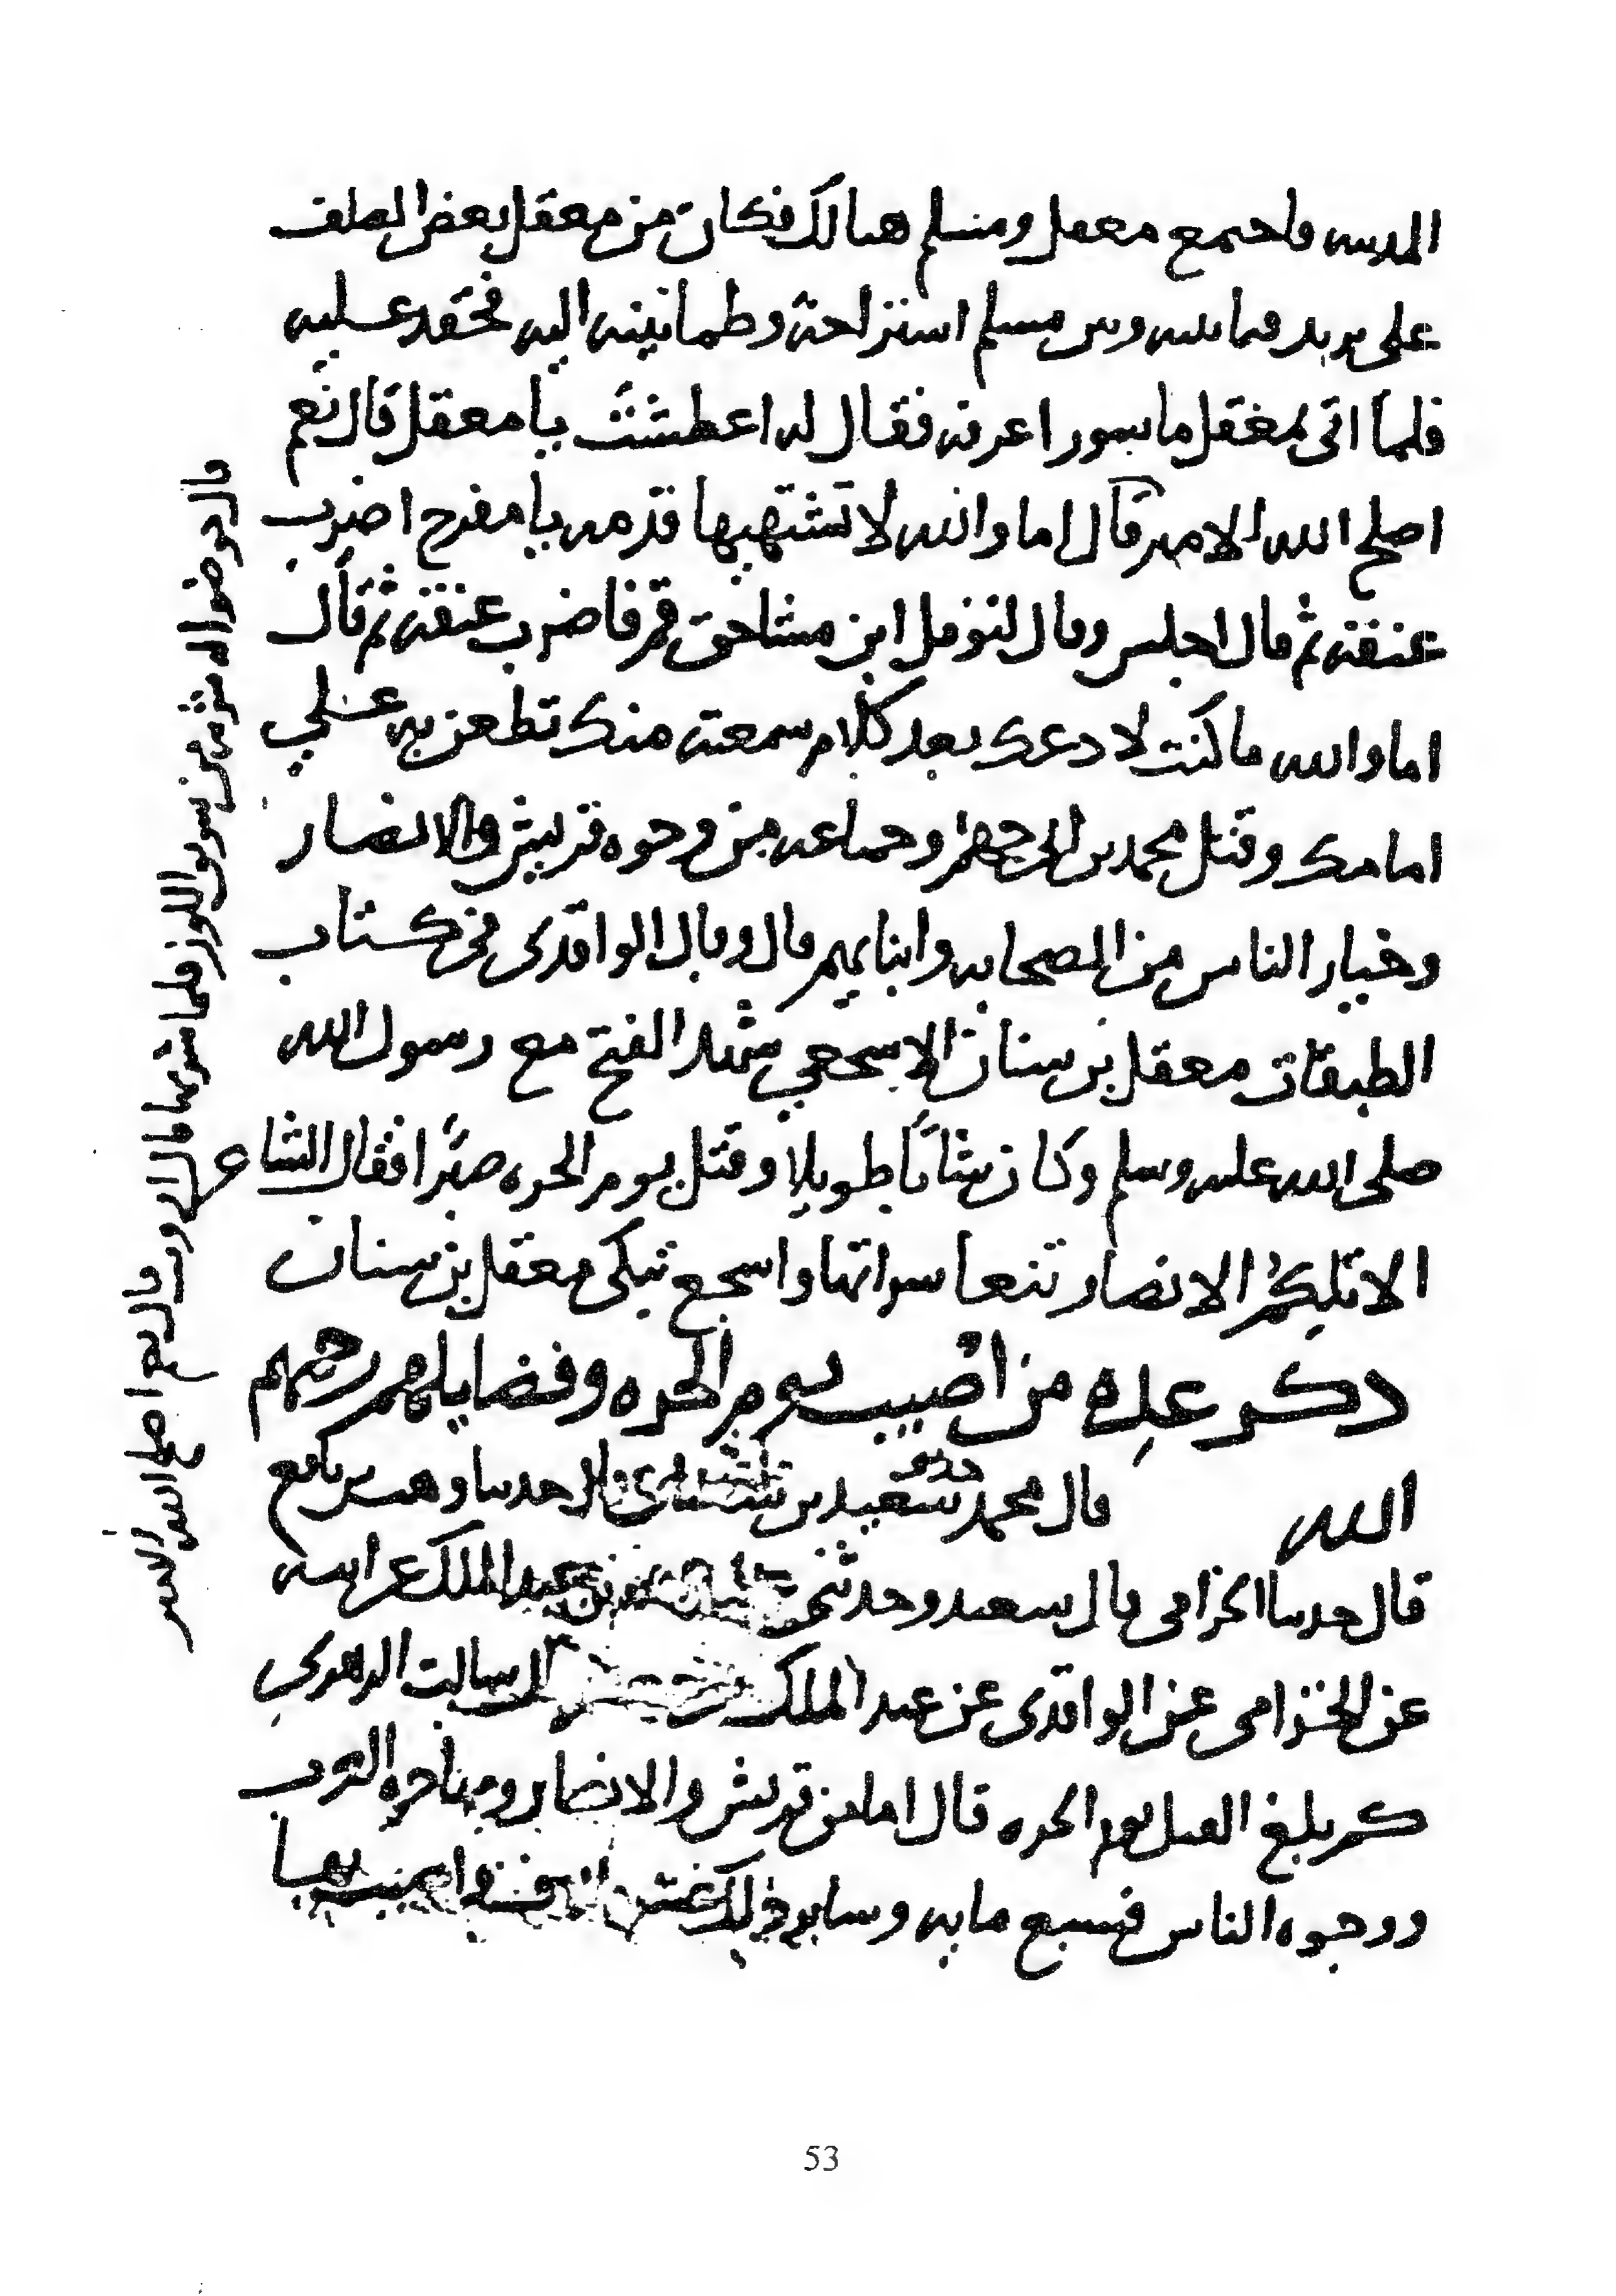 المدينه فاجتمع معقل ومسلم هنالك فكان من معقل بعض العلف
على يزيد فيما بينه وبين مسلم استنزاحة وطمانينه اليه فحقد عليه
فلما اتى بمعقل ماسورا عرفه فقال له اعطشت يا معقل قال نعم
اصلح الله الامير قال اما والله لا تشتهيها قدمه يا مفرج اضرب
عنقه ثم قال اجلس وقال لنوفل ابن مساحق قم فاضرب عنقه ثم قال
اما والله ما كنت لادعك بعد كلام سمعته منك تطعن به علي
امامك وقتل محمد بن ابي جهم وجماعه من وجوه قريش والانصار
وخيار الناس من الصحابه وابنايهم قال وقال الواقدي في كتاب
الطبقات معقل بن سنان الاشجعي شهد الفتح مع رسول الله
صلى الله عليه وسلم وكان شابا طويلا وقتل يوم الحره صبرا فقال الشاعر
الا تلكم الانصار تنعا سراتها واشجع تبكي معقل بن سنان
ذكر عدة من اصيب يوم الحره وفضايلهم رحمهم
الله قال محمد سعيد بن قال حدثنا وهب بن نافع
قال حدثنا الحزامي قال سعيد وحدثني عبد الملك عن ابيه
عن الحزامي عن الواقدي عن عبد الملك سالت الزهري
كم بلغ القتل يوم الحره قال اما من قريش والانصار ومهاجره العرب
ووجوه الناس فسبع مايه وساير ذلك عشره
قال خوضوا له من سويق اللوز فلما شربها قال ارويت
قال نعم اصلح الله الامير
53